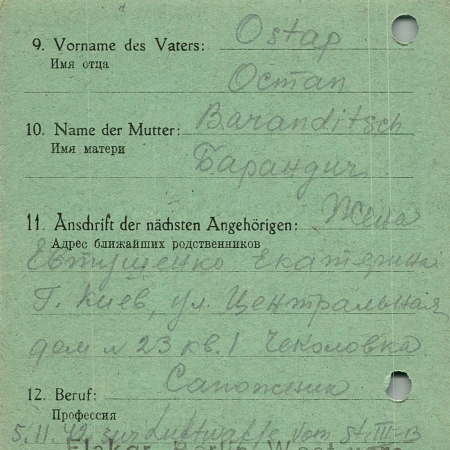 9. Vorname des Vaters: Ostap
Имя отца
Остап
10. Name der Mutter: Baranditsch
Имя матери
Барандич
11. Anschrift der nächsten Angehörigen: Жена
Адрес ближайших родственников
Евтушенко Екатерина
Г. Киев, ул. Центральная
дом № 23 кв. 1 Чеколовка
12. Beruf: Сапожник
Профессия
5.11.42 zur Luftwaffe vom St. III-B
Berlin-West